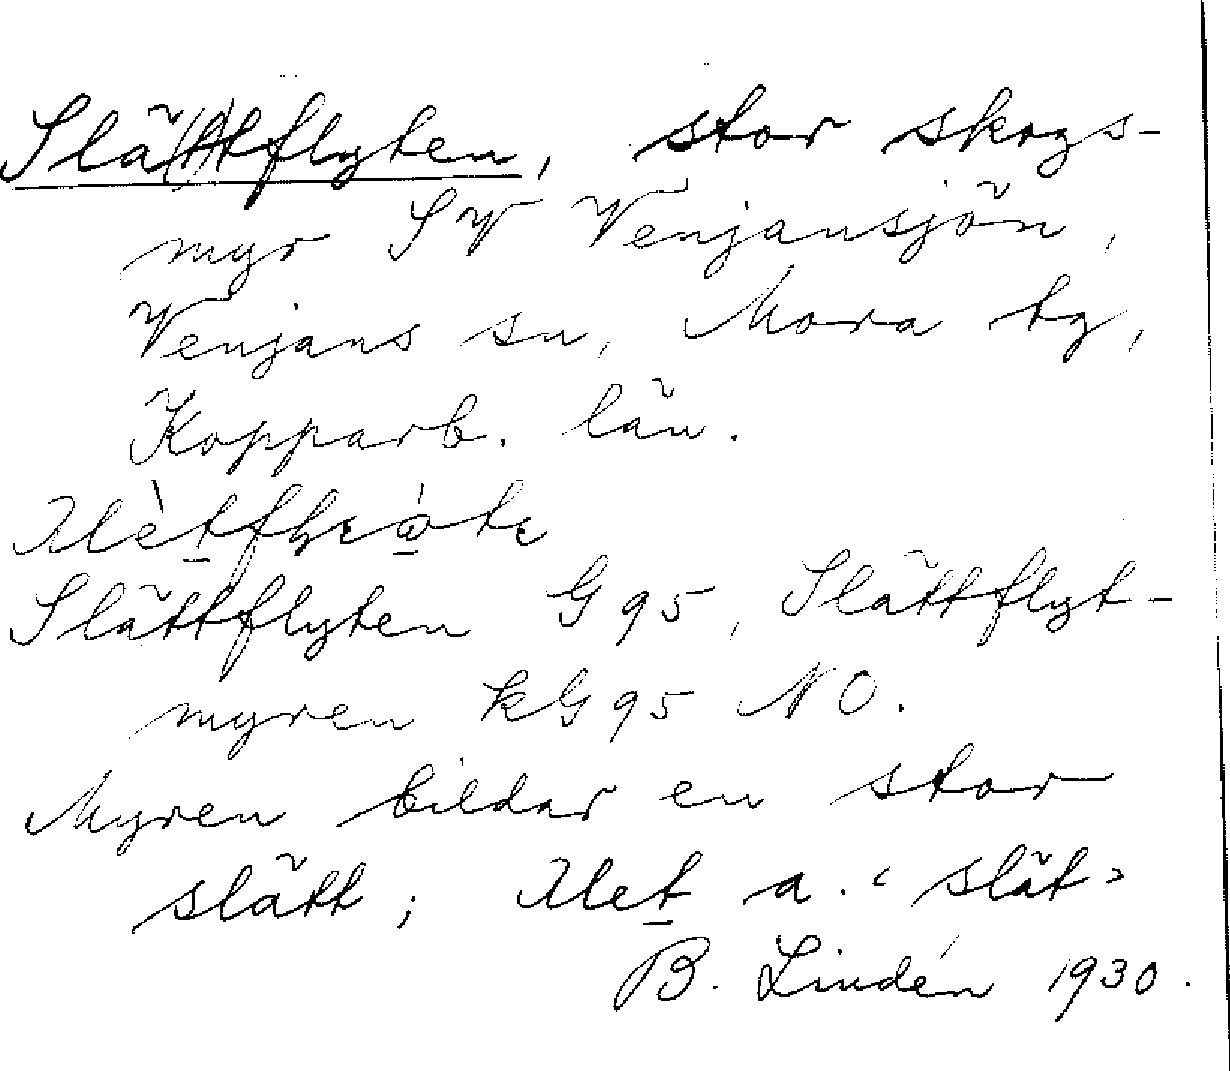 Slä(t)tflyten, stor skogs-
myr SV Venjansjön,
Venjans sn, Mora tg,
Kopparb. län.
Slättflyten G95, Slättflyt-
myren kG95 NO.
Myren bildar en stor
slätt; a. ‹slät›
B. Lindén 1930.